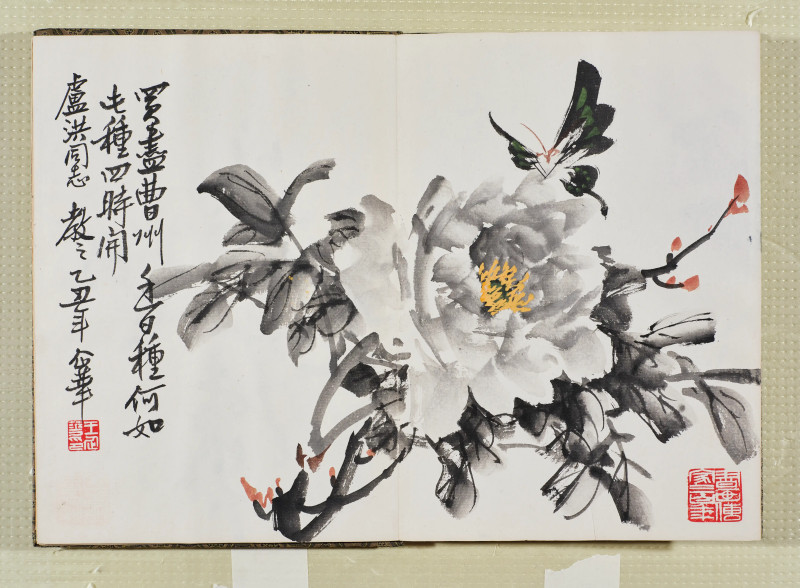 買盡曹州千百種何如
此種四時開
盧洪同志教之乙丑年企華